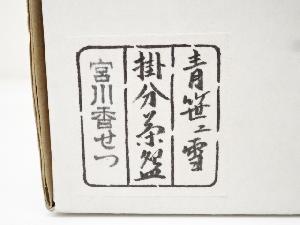 青笹ニ雪
掛分茶盌
宮川香せつ